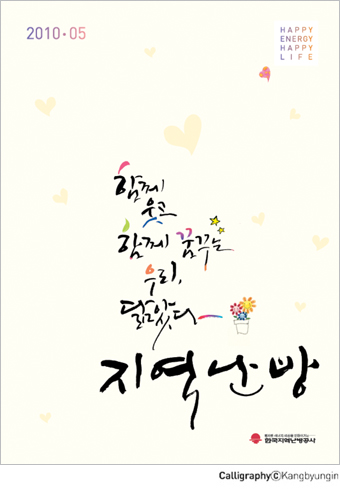 2010 • 05
HAPPY
ENERGY
HAPPY
LIFE
함께
웃고
함께 꿈꾸는
우리,
닮았다
지역난방
한국지역난방공사
CalligraphyⓒKangbyungin